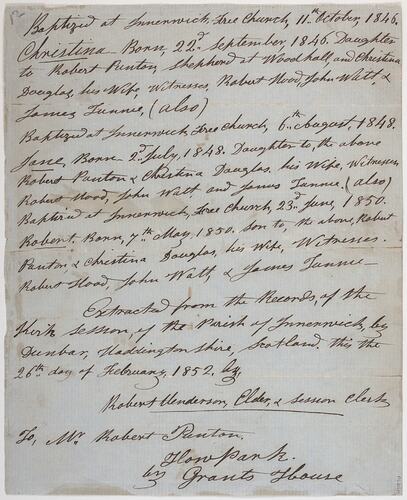 Baptized at Innerwick, Free Church, 11th October, 1846.
Christina Born, 22d September, 1846. Daughter
to Robert Punton, Shepherd at Woodhall, and Christina
Douglas, his Wife, Witnesses, Robert Hood, John Watt, &
James Tunnie, (also)
Baptized at Innerwick, Free Church, 6th August, 1848.
Jane, Born 2d July, 1848. Daughter to the above
Robert Punton & Christina Douglas, his Wife, Witnesses,
Robert Hood, John Watt and James Tunnie, (also)
Baptized at Innerwick, Free Church, 23d June, 1850.
Robert. Born, 7th May, 1850. Son to, the above, Robert
Punton, & Christina Douglas, his Wife, Witnesses.
Robert Hood, John Watt, & James Tunnie—
Extracted from the Records, of the
Kirk Session, of the Parish of Innerwick, by
Dunbar, Haddingtonshire, Scotland. this the
26th day of February, 1852. by,
Robert Henderson, Elder, & Session Clerk
To, Mr Robert Punton.
Howpark.
by Grants House